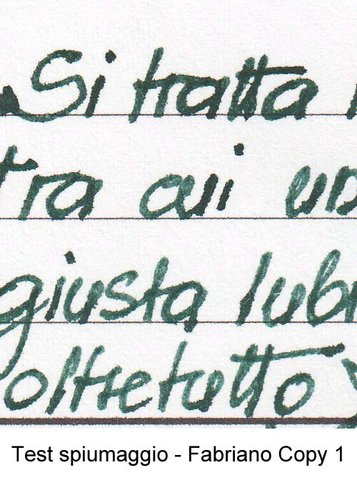 Si tratta
tra cui
giusta lub
oltretutto
Test spiumaggio - Fabriano Copy 1